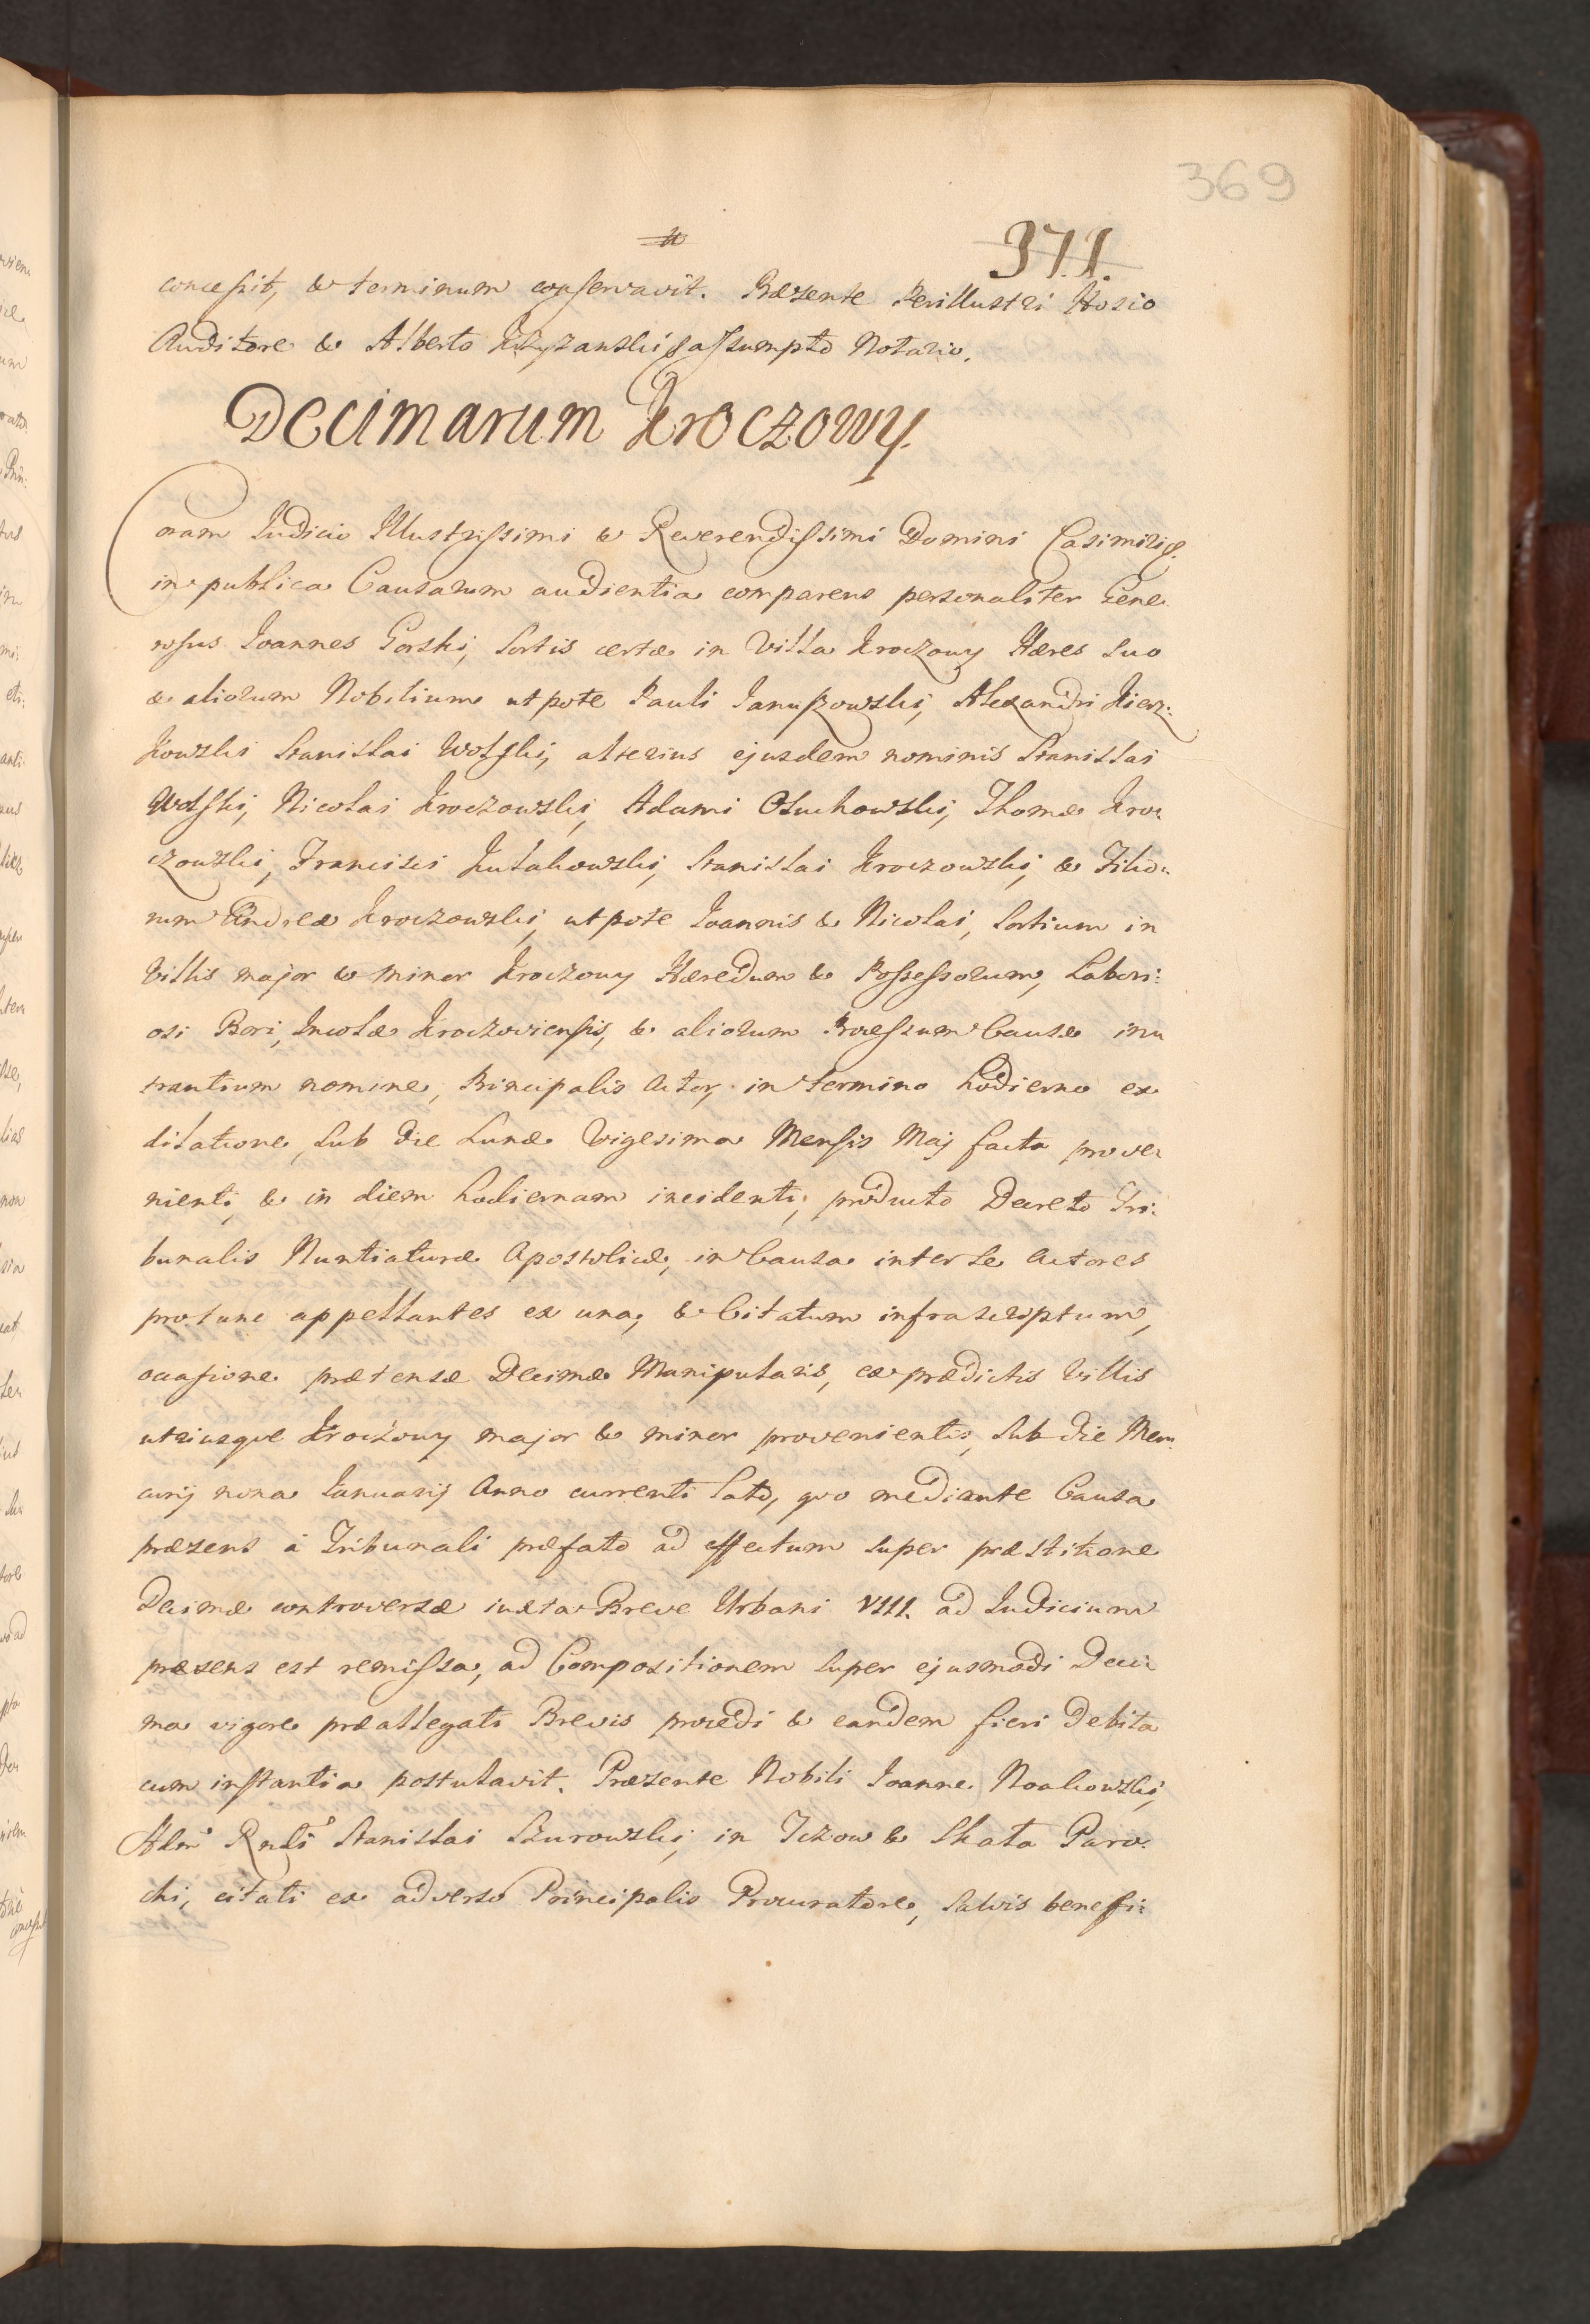 369
371.
concessit, & terminum conservavit. Præsente Perillustri Hosio
Auditore & Alberto assumpto Notario.
Decimarum Kroczowy.
Coram Iudicio Illustrissimi & Reverendissimi Domini Casimiri
in publica Causarum audientia comparens personaliter Gene:
rosus Ioannes Gorski, Sortis certæ in Villa Kroczowy Hæres suo
& aliorum Nobilium utpote Pauli Januszowski, Alexandri Kierz:
kowski Stanislai Wolski, alterius ejusdem nominis Stanislai
Wolski, Nicolai Kroczowski, Adami Osuchowski, Thomæ Kro:
czowski, Francisci Kutakowski, Stanislai Kroczowski, & Filio:
rum Andreæ Kroczowski, utpote Ioannis & Nicolai, Sortium in
Villis major & minor Kroczowy Hæredum & Possessorum, Labori:
osi Bori, Incolæ Kroczoviensis, & aliorum Processum Causæ inn
trantium nomine, Principalis Actor, in termino hodierno ex
citatione, sub die Lunæ Vigesima Mensis Maij facta prove:
nienti, & in diem hodiernam incidenti, producto Decreto Tri:
bunalis Nuntiaturæ Apostolicæ, in Causa inter se Actores
pro tunc appellantes ex una, & Citatum infrascriptum,
occasione prætensæ Decimæ Manipularis, ex prædictis Villis
utriusque Kroczowy major & minor provenientis, sub die Mer:
curij nona Ianuarij Anno currenti lato, quo mediante Causa
præsens a Tribunali præfato ad effectum super præstitione
Decimæ controversæ iuxta Breve Urbani VIII. ad Iudicium
præsens est remissa, ad Compositionem super ejusmodi Deci:
ma vigore præallegati Brevis procedi & eandem fieri debita
cum instantia postulavit. Præsente Nobili Ioanne Noakowski,
Adm Rndi Stanislai Szurowski, in Jezow & Skała Paro:
chi, citati ex adverso Principalis Procuratore, salvis benefi: